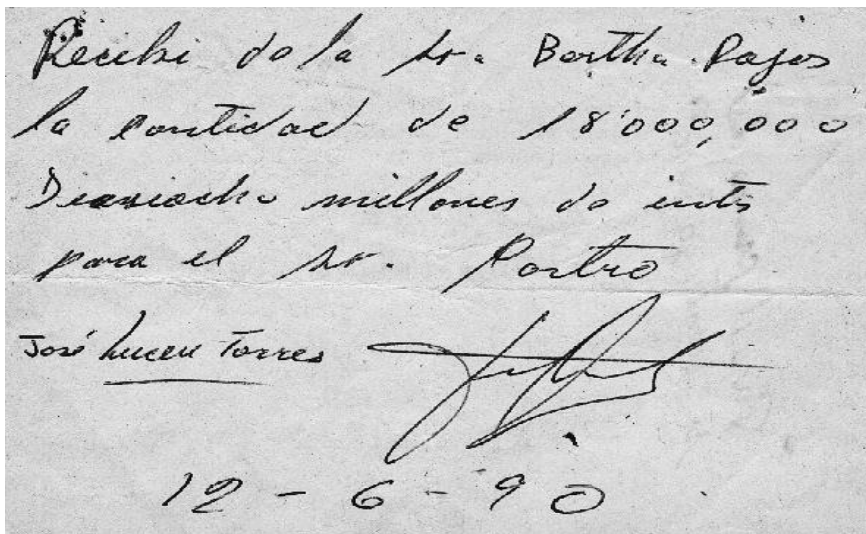 Recibi de la sr. Bertha Pajos
la cantidad de 18'000,000
Dieciocho millones de intis
para el sr. Castro
José Lucen Torres
12 - 6 - 90